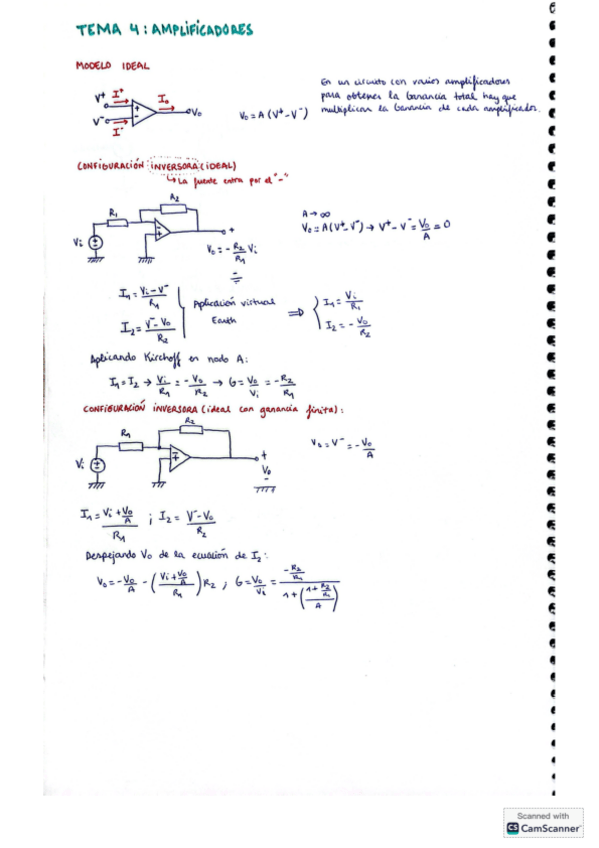 TEMA 4: AMPLIFICADORES
MODELO IDEAL
En un circuito con varios amplificadores
para obtener la Ganancia total hay que
multiplicar la Ganancia de cada amplificador.
V⁺ I⁺ I₀ V₀
V⁻ I⁻
V₀ = A (V⁺ - V⁻)
CONFIGURACIÓN INVERSORA (IDEAL)
↳ La fuente entra por el "-"
R₂
R₁
Vi
V₀ = - R₂/R₁ Vi
A → ∞
V₀ = A(V⁺ - V⁻) → V⁺ - V⁻ = V₀/A = 0
I₁ = (Vi - V⁻)/R₁
I₂ = (V⁻ - V₀)/R₂
Aplicación virtual
Earth
⇒ { I₁ = Vi/R₁
I₂ = - V₀/R₂
Aplicando Kirchoff en nodo A:
I₁ = I₂ → Vi/R₁ = -V₀/R₂ → G = V₀/Vi = -R₂/R₁
CONFIGURACIÓN INVERSORA (ideal con ganancia finita):
R₂
R₁
Vi
V₀
V₀ = V⁻ = - V₀/A
I₁ = (Vi + V₀/A)/R₁ ; I₂ = (V⁻ - V₀)/R₂
Despejando V₀ de la ecuación de I₂:
V₀ = -V₀/A - ((Vi + V₀/A)/R₁) R₂ ; G = V₀/Vi = (-R₂/R₁)/(1 + ((1 + R₂/R₁)/A))
Scanned with
CS CamScanner